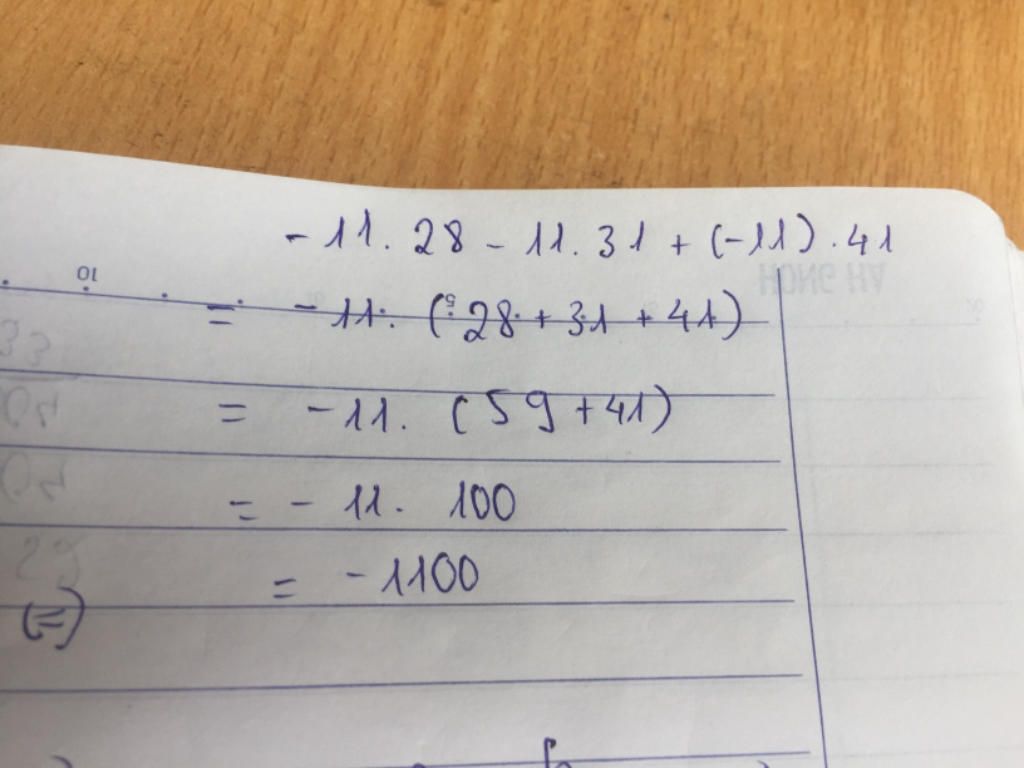 -11. 28 - 11. 31 + (-11) . 41
= -11. (28 + 31 + 41)
= -11. (59 + 41)
= -11. 100
= -1100
(=)
10
HONG HA